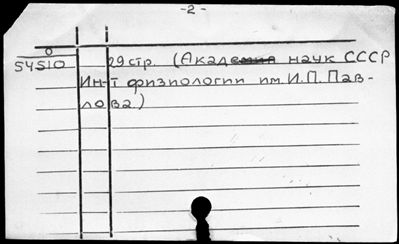 -2-
0
54510 29 стр. (Академия наук СССР
Ин-т физиологии им. И.П. Пав-
лова)